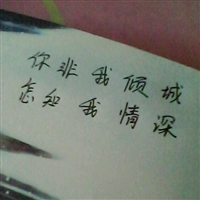 你非我倾城
怎知我情深